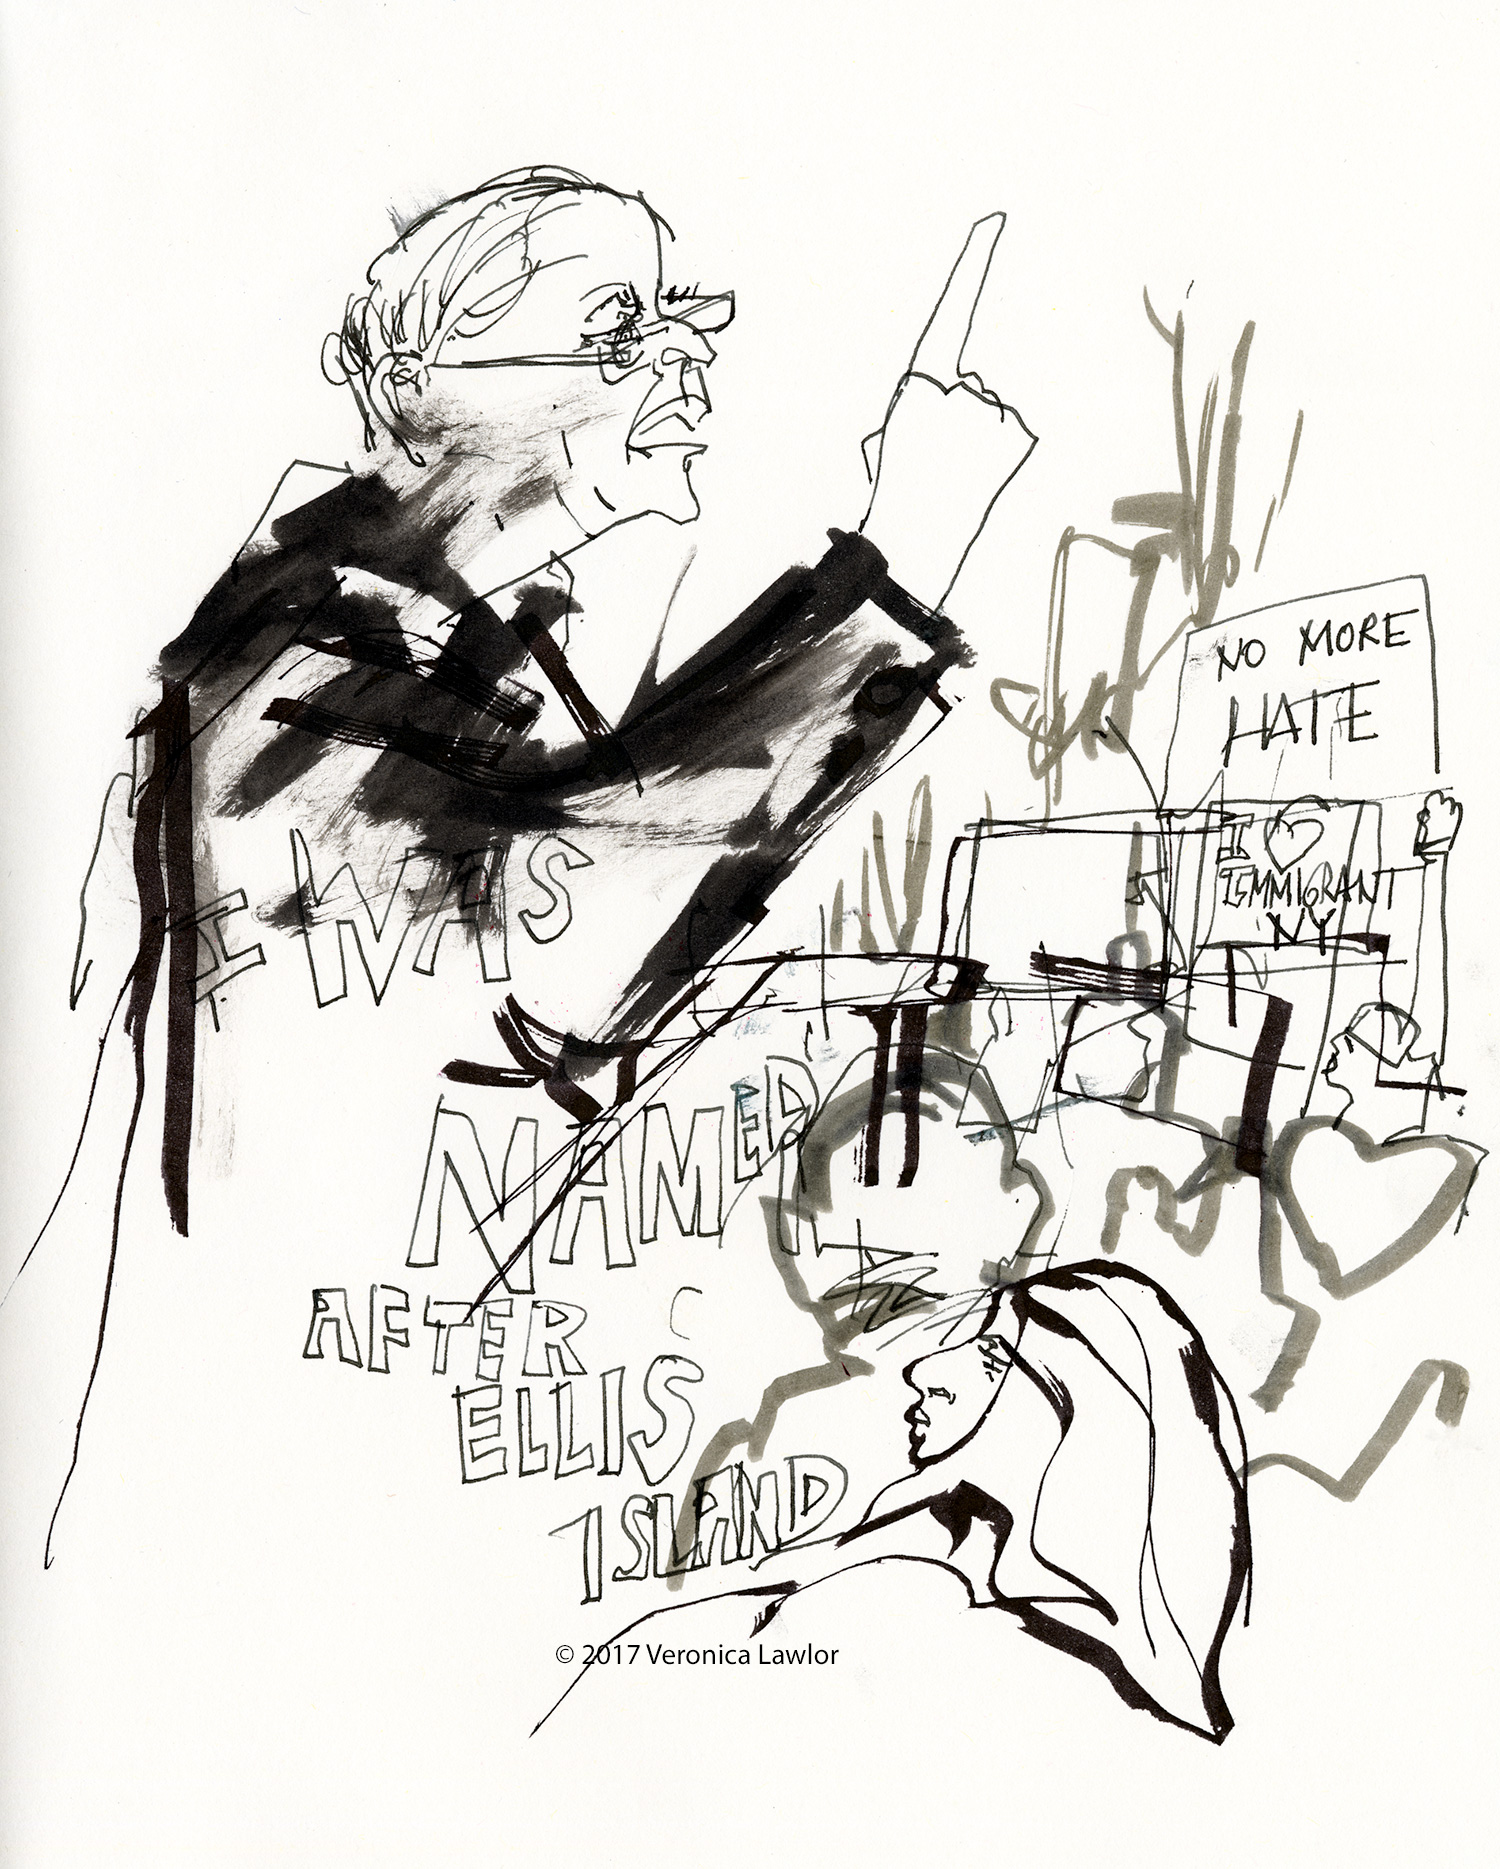 NO MORE
HATE
I ♡
IMMIGRANT
NY
I WAS
NAMED
AFTER
ELLIS
ISLAND
© 2017 Veronica Lawlor